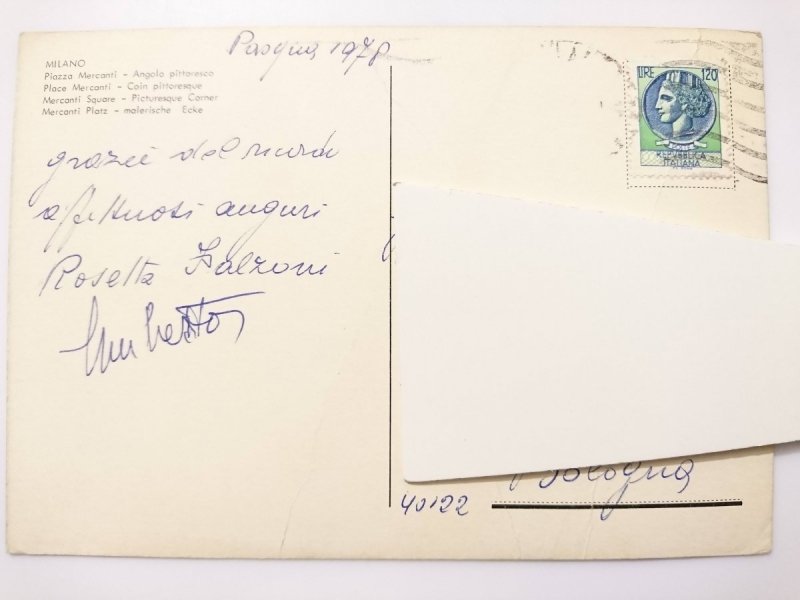 Pasqua 1978
MILANO
Piazza Mercanti - Angolo pittoresco
Place Mercanti - Coin pittoresque
Mercanti Square - Picturesque Corner
Mercanti Platz - malerische Ecke
grazie del
affettuosi auguri
Rosetta Falzoni
Umberto
LIRE 120
REPUBBLICA
ITALIANA
Bologna
40122